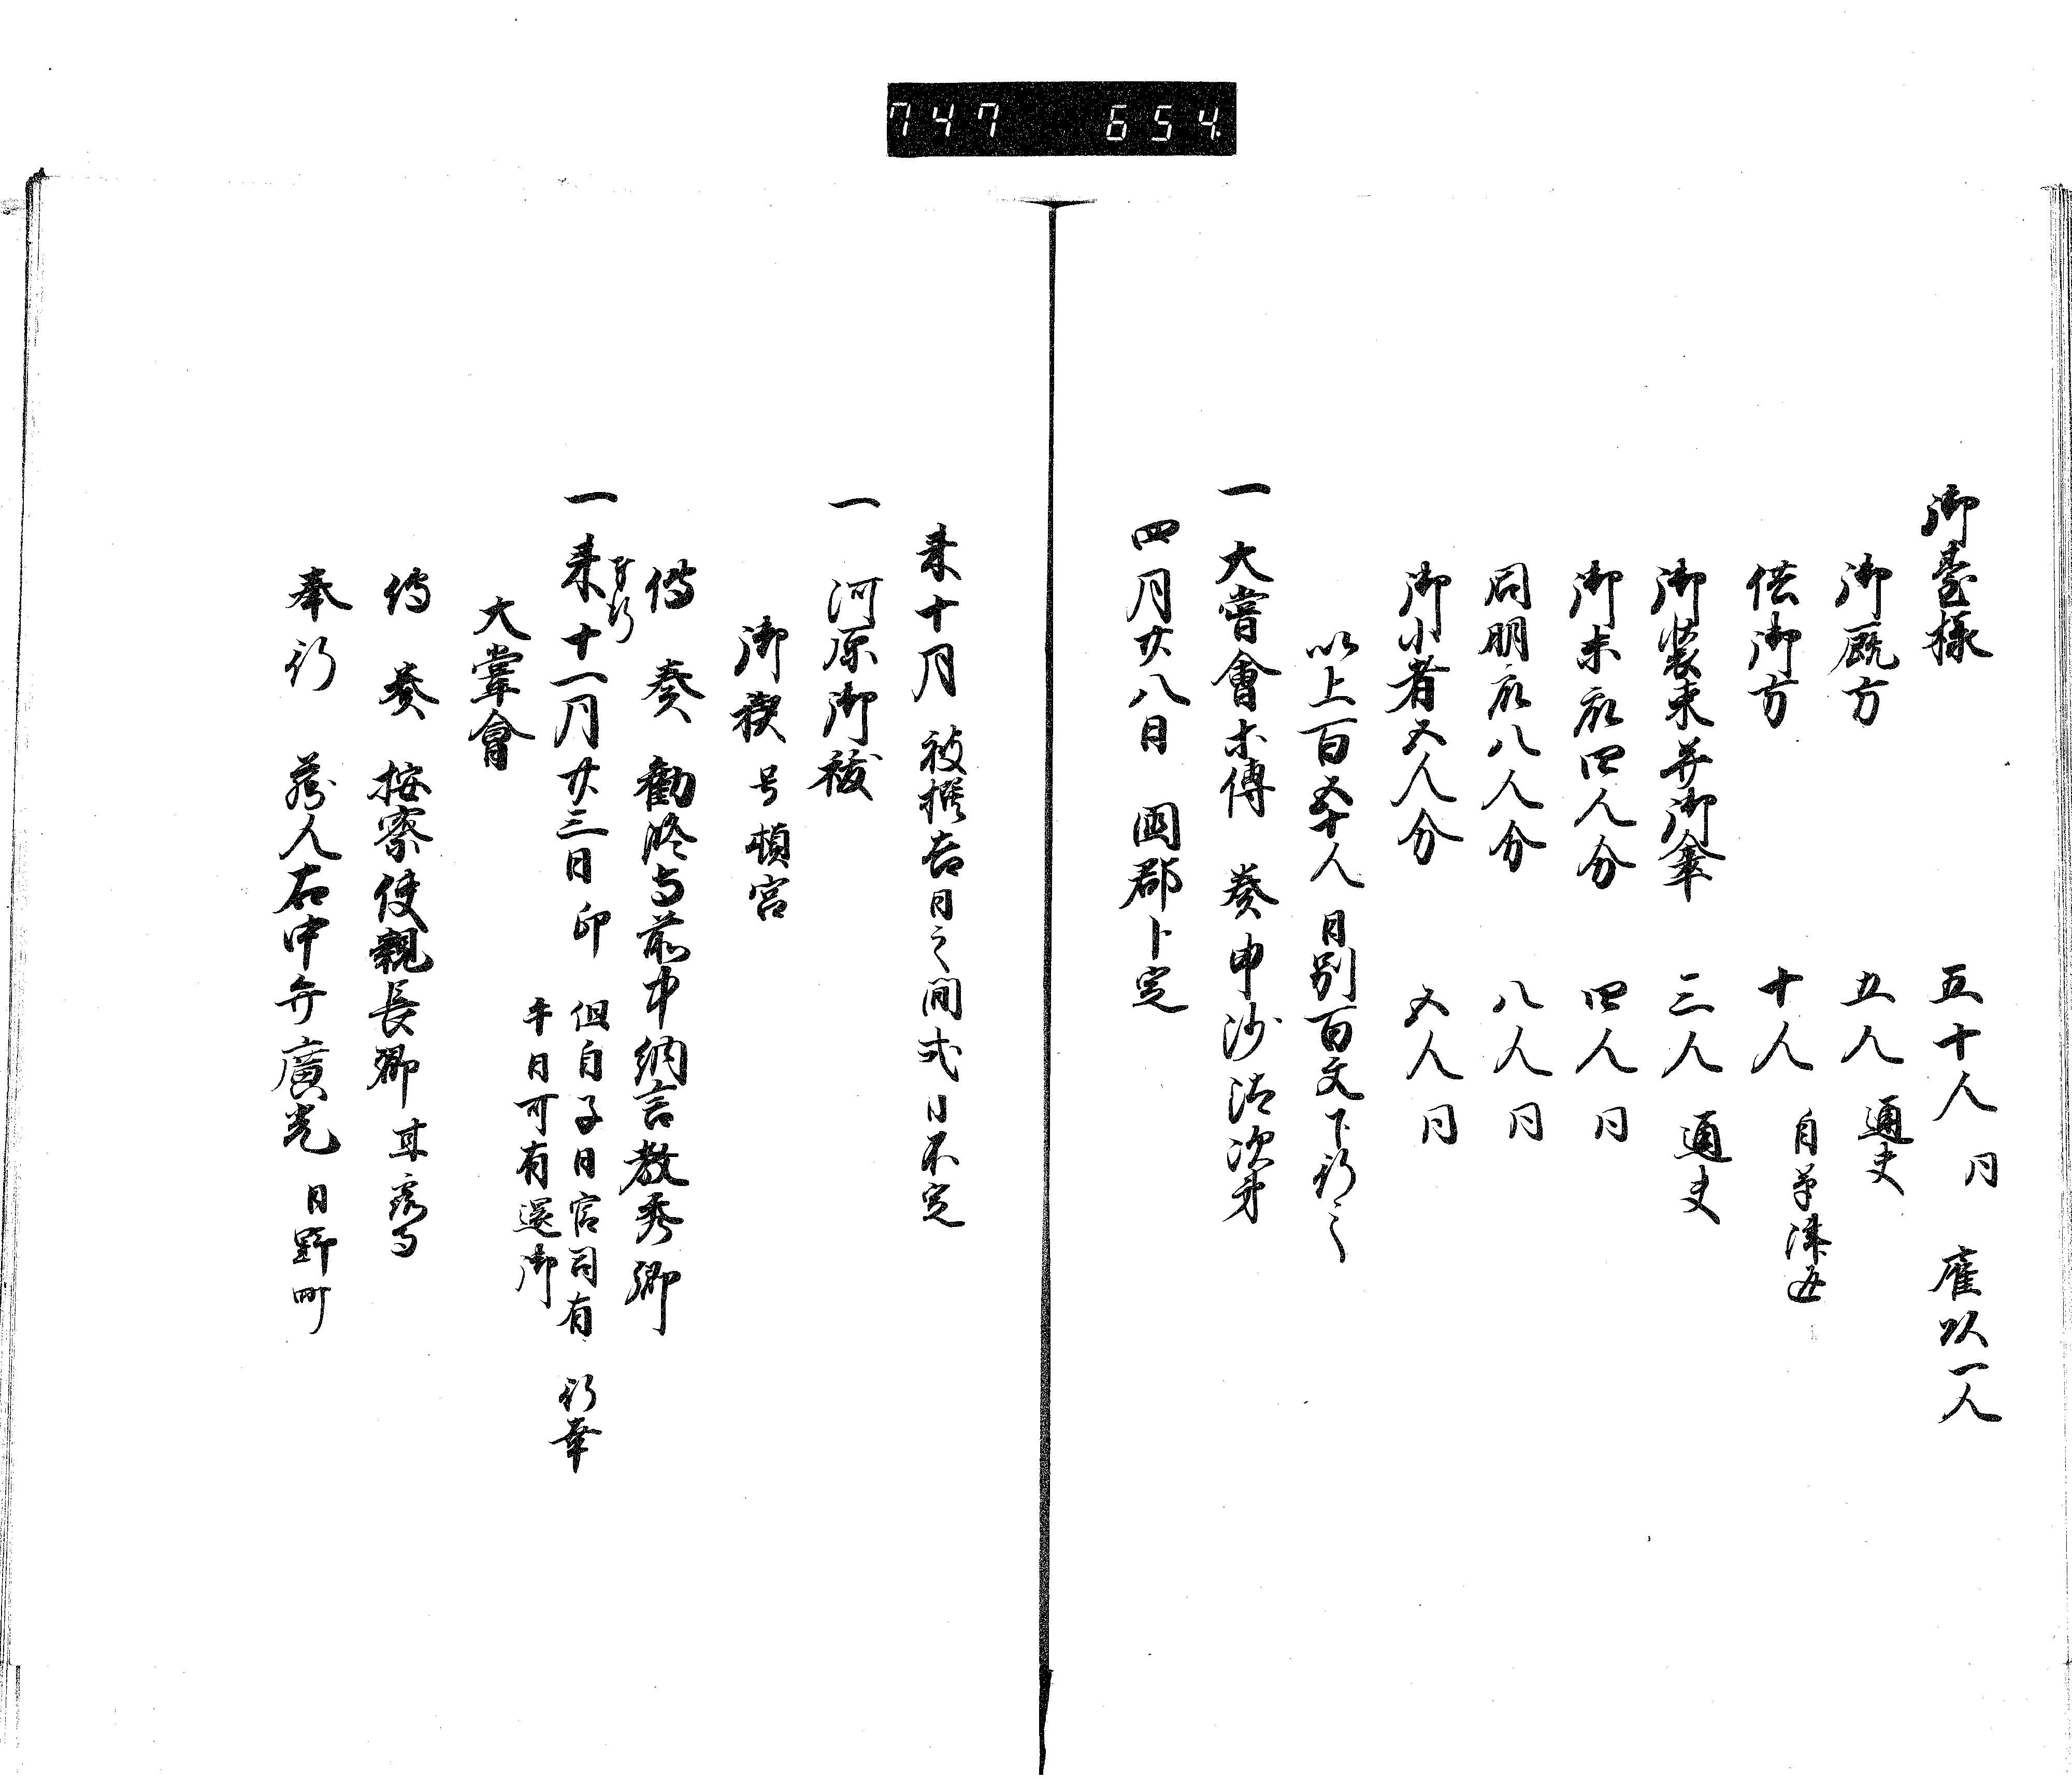 747 654
御臺樣 五十人 同 雇以一人
御厩方 五人 通夫
供御方 十人 自草津返
御装束并御傘 三人 通夫
御末衆四人分 四人 同
同朋衆八人分 八人 同
御小者五人分 五人 同
以上百五十人 日別百文下行之
一 大嘗會 傳 奏申沙汰次第
四月廿八日 國郡卜定
来十月 被撰吉日之間式日不定
一 河原御祓
御禊 号頓宮
傳奏 勧修寺前中納言教秀卿
奉行
一 来十一月廿三日 卯 但自子日官司有 行幸
午日可有還御
大嘗會
傳奏 按察使親長卿 甘露寺
奉行 蔵人右中弁廣光 日野町